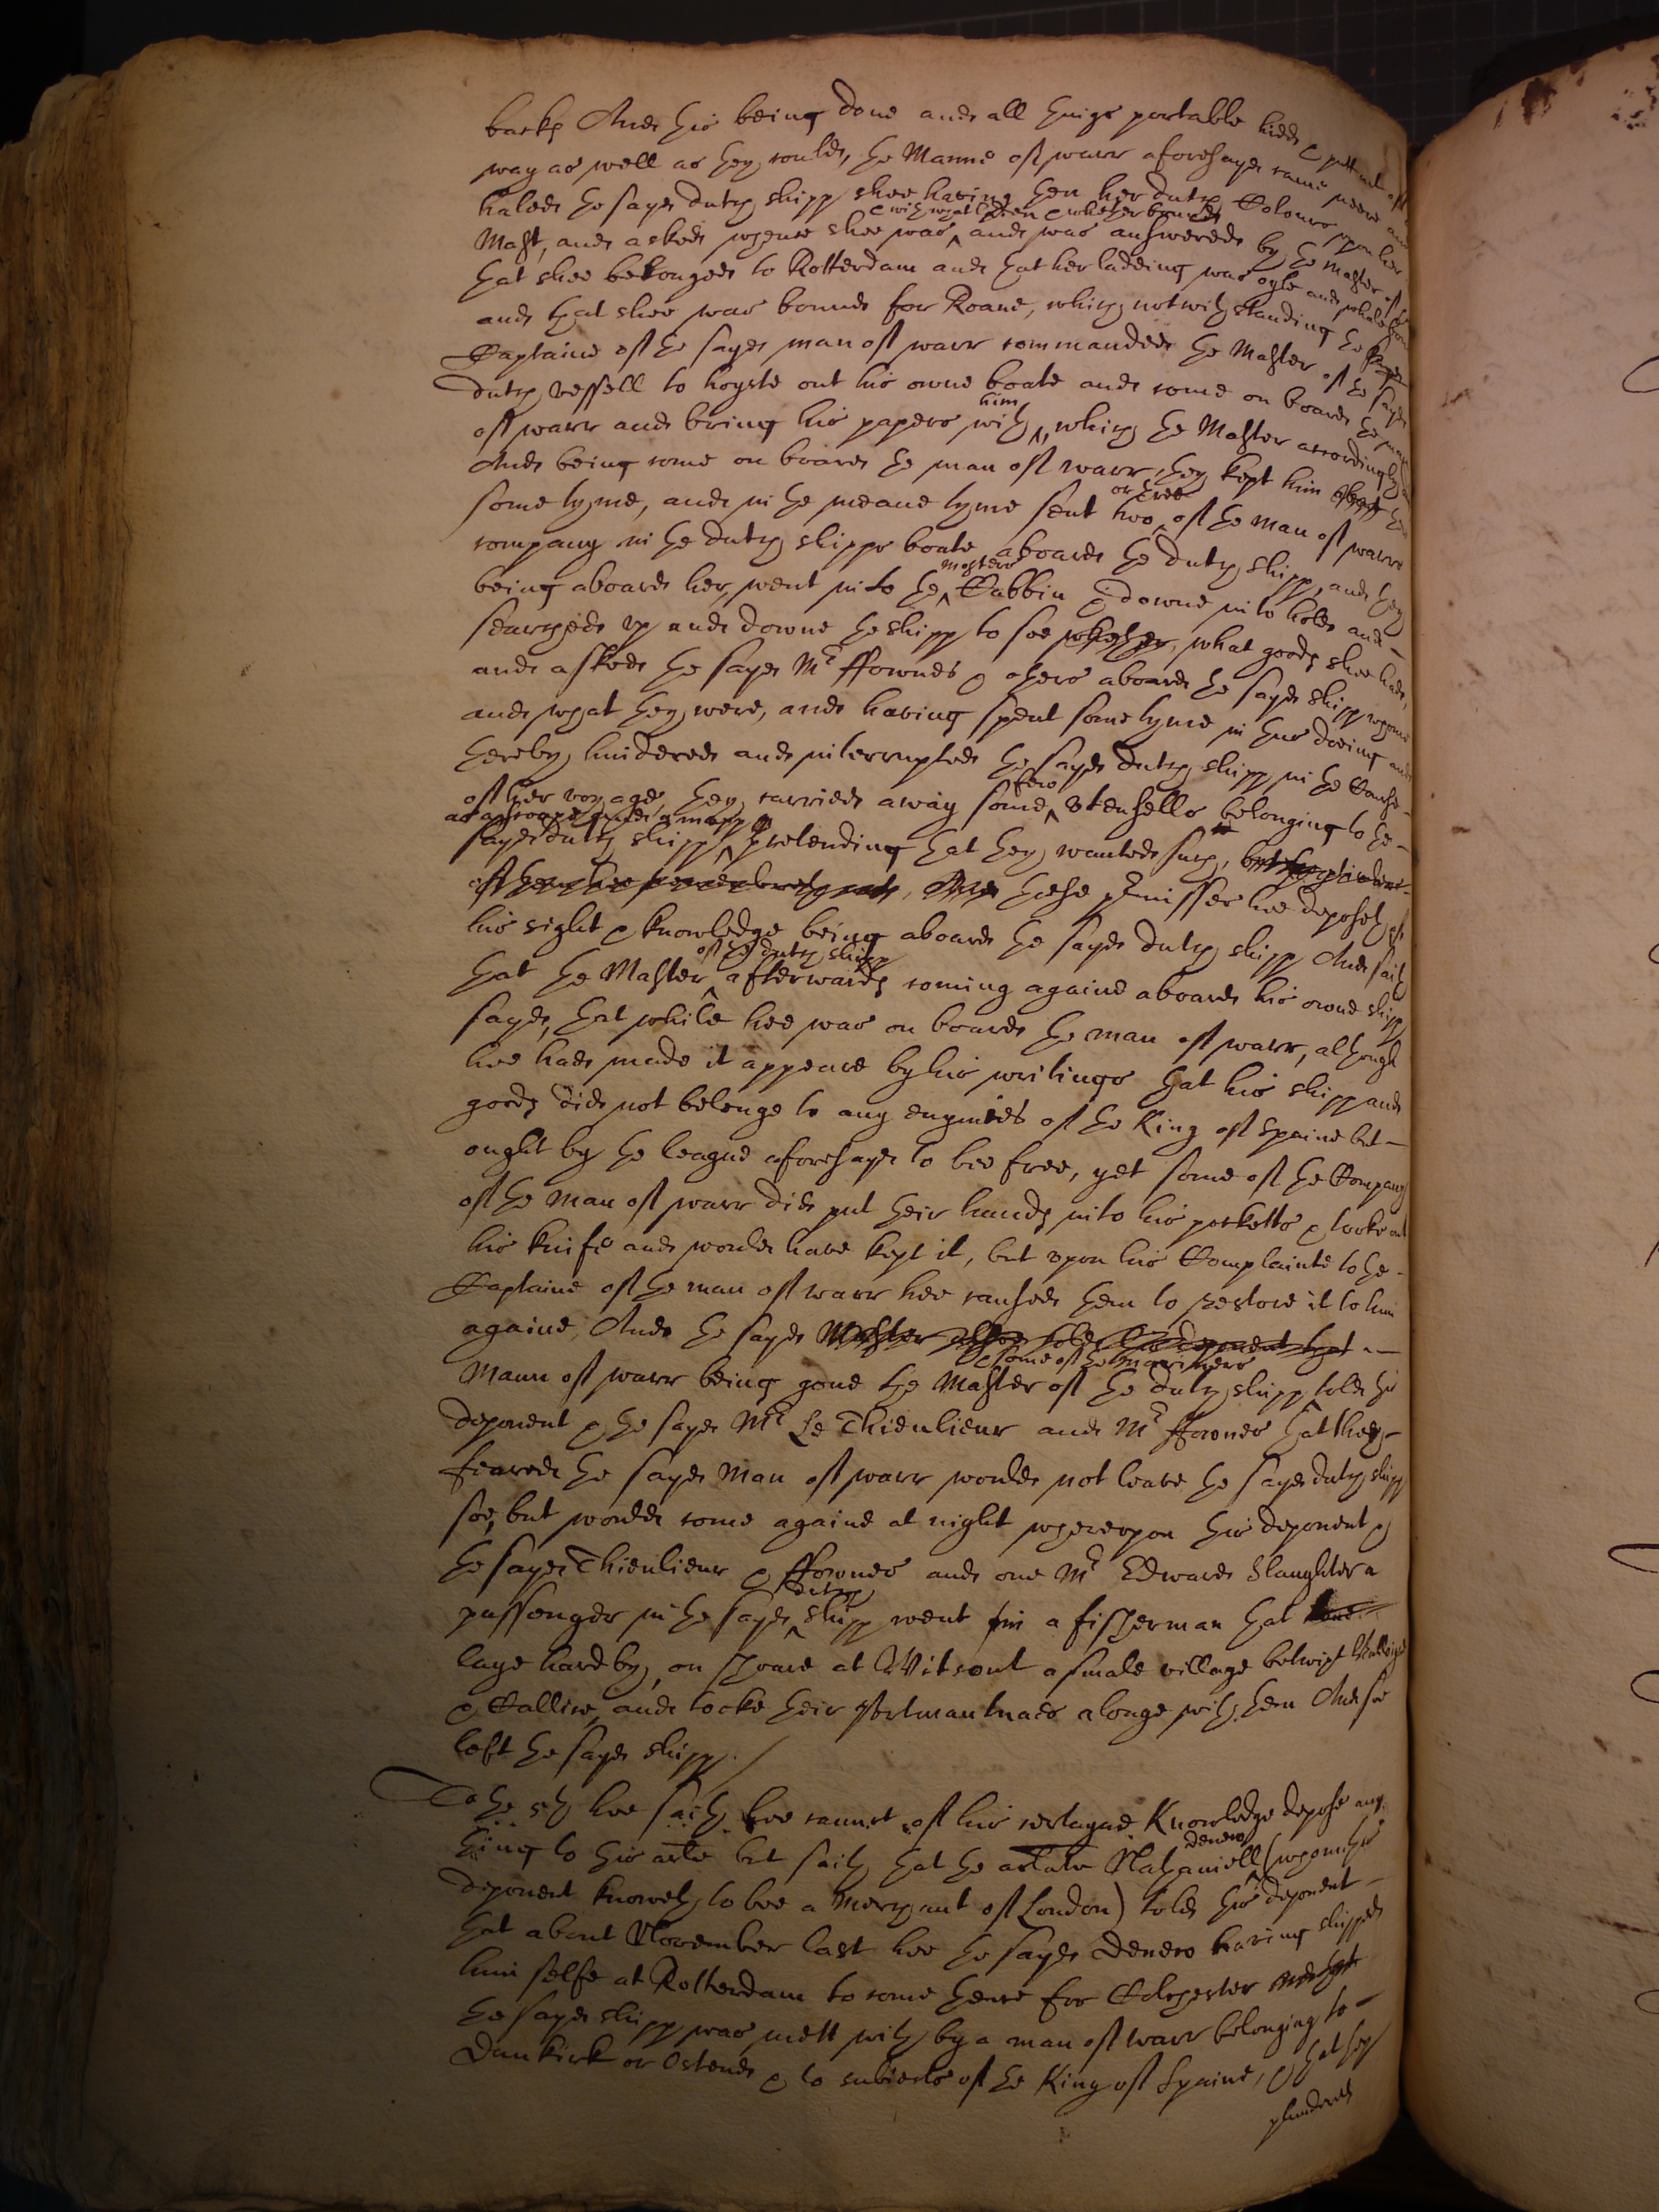 backs And this being done and all things portable hidd & putt out of the
way as well as they could, the Manne of warr aforesayd came neere and
haled the sayd dutch shipp shee having then her dutch Colours upon her
Mast, and asked whence shee was ^& with what laden & whether bound^ and was answered by the Master of the
that shee belonged to Rotterdam and that her ladeing was oyle and whale
and that shee was bound for Roane, which notwithstanding the
Captaine of the sayd man of warr commanded the Master of the sayd
dutch vessell to hoyste out his owne boate and come on board the man
of warr and bring his papers with ^him^, which the Master accordingly
And being come on board the man of warr, they kept him there
some tyme, and in the meane tyme sent two ^or three^ of the man of warrs
company in the dutch shipps boate aboard the dutch shipp, and they
being aboard her, went into the ^Masters^ Cabbin & downe into hold and
searched up and downe the shipp to see whether, what goods shee had,
and asked the sayd Mr ffownes & others aboard the sayd shipp whome
and what they were, and having spent some tyme in thus doeing and
thereby hindered and interrupted the sayd dutch shipp in the Course
of her voyage, they carried away some ^few^ Utensells belonging to the
sayd dutch shipp ^as a roape and a mapp^ pretending that they wanted such,
And these premisses hee deposeth of
his sight & knowledge being aboard the sayd dutch shipp And saith
that the Master ^of the dutch shipp^ afterwards coming againe aboard his owne shipp
sayd, that while hee was on board the man of warr, although
hee had made it appeare by his writings that his shipp and
goods did not belonge to any enymies of the King of Spaine but
ought by the league aforesayd to bee free, yet some of the Company
of the man of warr did put their hands into his pocketts & tooke out
his knife and would have kept it, but upon his Complainte to the
Captaine of the man of warr hee caused them to restore it to him
againe, And the sayd Master told this deponent that
Mann of warr being gone the Master ^& some of the mariners^ of the dutch shipp told this
deponent & the sayd Mr Le Thieulieur and Mr ffownes that they
feared the sayd Man of warr would not leave the sayd dutch shipp
soe, but would come againe at night whereupon this deponent &
the sayd Thieulieur & ffownes and one Mr Edward Slaughter a
passenger in the sayd ^dutch^ shipp went in a fisherman that
laye hard by, on shoare at Witsont a smale village betwixt
& Callice, and tooke their Portmantuaes alonge with them And soe
left the sayd shipp./
To the 5th hee saith hee cannot of his certayne Knowledge depose any
thing to this arle but saith that the arlate Nathaniell ^Denew^ (whom this
deponent knoweth to bee a Merchant of London) told this deponent
that about November last hee the sayd Denew having shipped
him selfe at Rotterdam to come thence for Colchester
the sayd shipp was mett with by a man of warr belonging to
Dunkirk or Ostend & to subiects of the King of Spaine, & that they
plundered